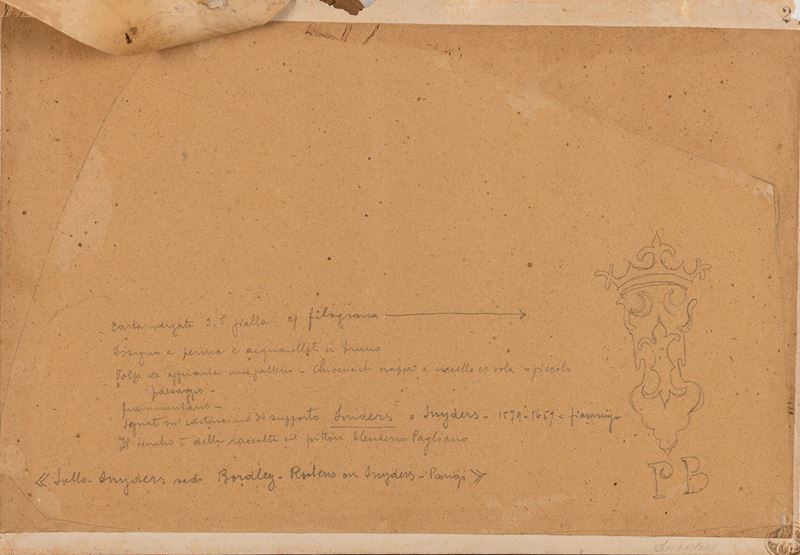 2
carta vergata gialla c/ filograna
Disegno a penna e acquarellat in bruno
Volpe che agguanta una gallina - e uccello che vola - piccolo
paesaggio -
frammentario -
Segnato sul cartoncino di supporto Sniders o Snyders - 1579-1657 - fiammin-
Il timbro è della raccolta del pittore Eleuterio Pagliano
« Sullo Snyders vedi Bordley - Rubens or Snyders - Parigi »
P B